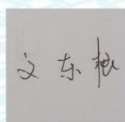 文东根